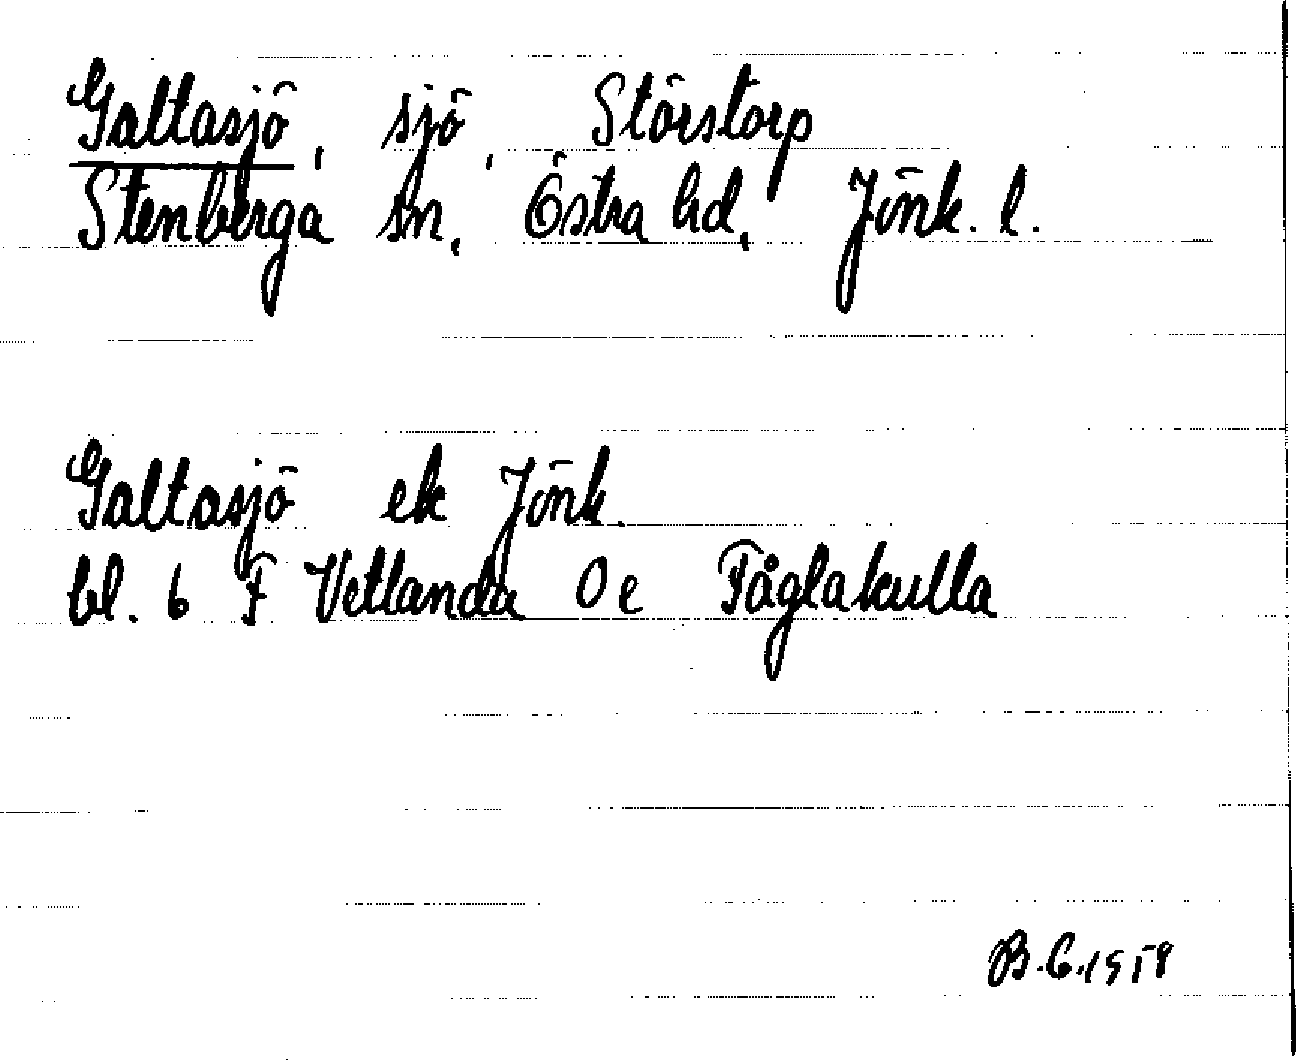 Galtasjö, sjö, Störstorp
Stenberga sn, Östra hd, Jönk. l.
Galtasjö ek Jönk.
bl. 6 F Vetlanda 0 e Fåglakulla